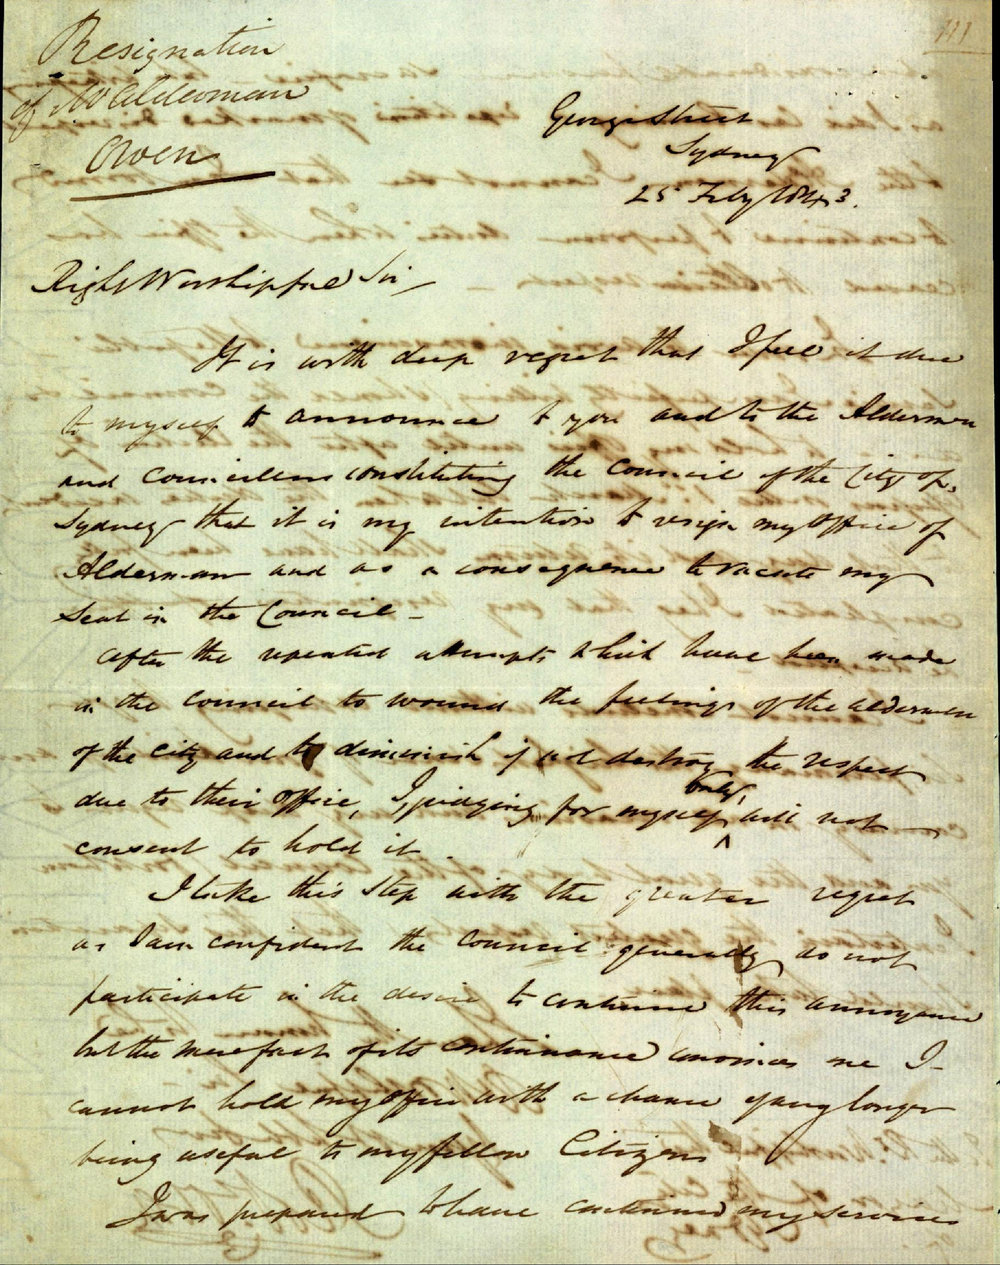 111
Resignation
of Mr Alderman
Owen
George Street
Sydney
25 Feby 1843.
Right Worshipful Sir,
It is with deep regret that I feel it due
to myself to announce to you and to the Aldermen
and Councillors constituting the Council of the City of
Sydney that it is my intention to resign my office of
Alderman and as a consequence to vacate my
seat in the Council _
After the repeated attempts which have been made
in the Council to wound the feelings of the aldermen
of the city and to diminish if not destroy the respect
due to their office, I, judging for myself only, will not
consent to hold it.
I take this step with the greater regret
as I am confident the Council generally do not
participate in the desire to continue this annoyance
but the mere fact of its continuance convinces me I
cannot hold my office with a chance of any longer
being useful to my fellow Citizens
I was prepared to have continued my services